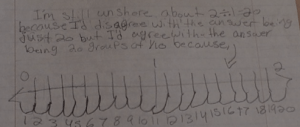 I'm still unshore about
because I'd disagree with the answer being
just 20 but I'd agree with the answer
being 20 or no because
0 2
1 2 3 4 5 6 7 8 9 10 11 12 13 14 15 16 17 18 19 20